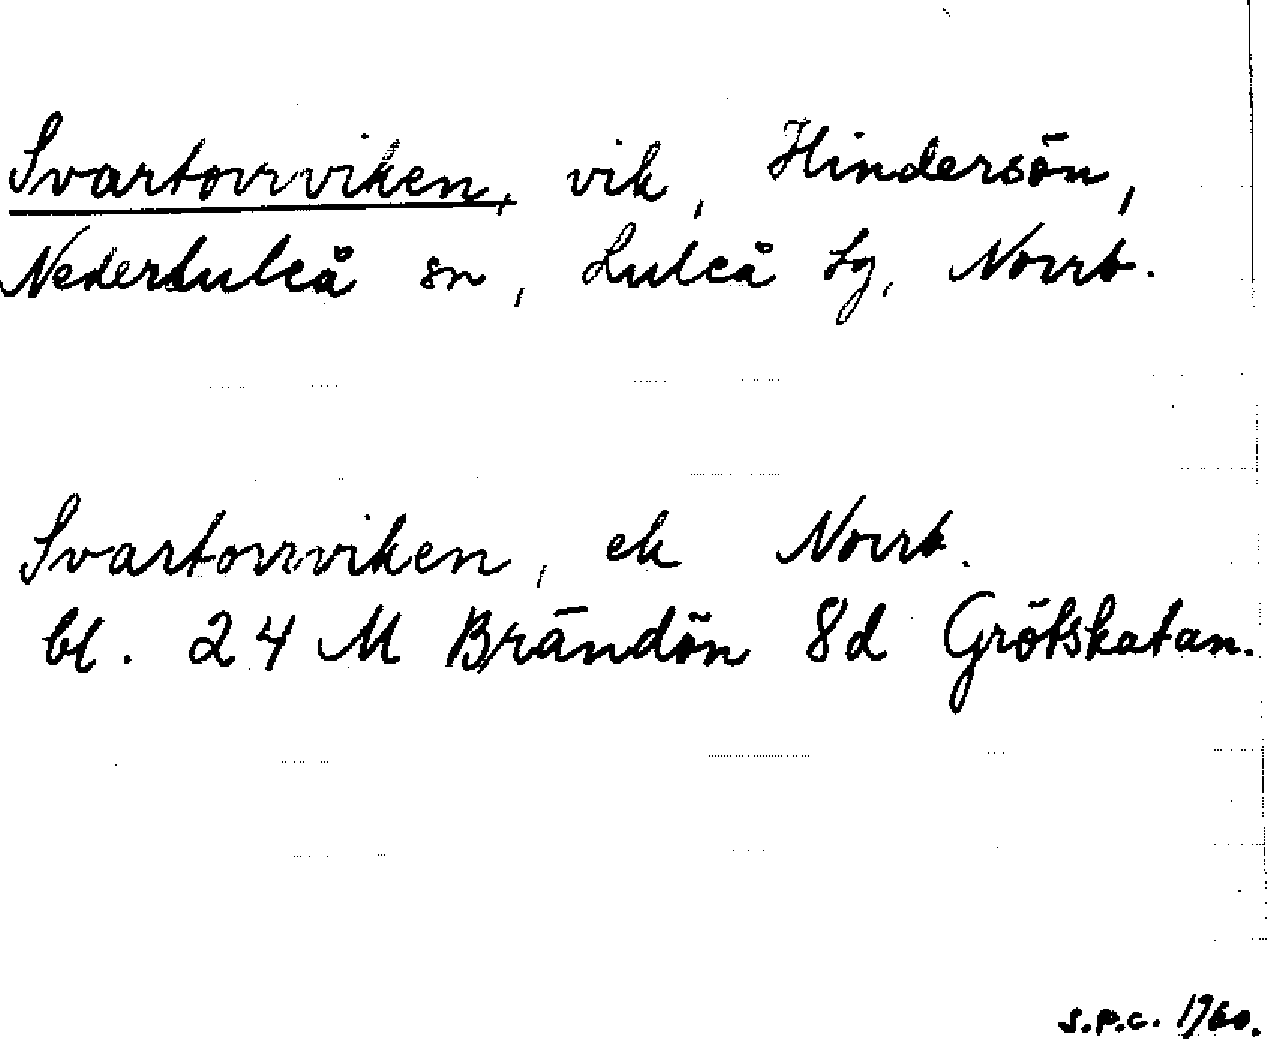 Svartorrviken, vik, Hindersön,
Nederluleå sn, Luleå tg, Norrb.
Svartorrviken, ek Norrb.
bl. 24 M Brändön 8d Grötskatan.
S.P.C. 1960.